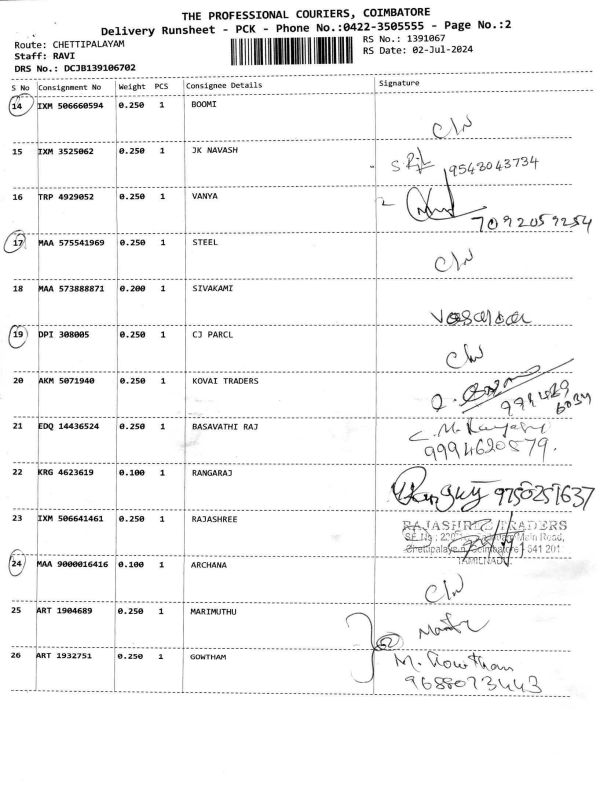 THE PROFESSIONAL COURIERS, COIMBATORE
Delivery Runsheet - PCK - Phone No.:0422-3505555 - Page No.:2
Route: CHETTIPALAYAM
RS No.: 1391067
Staff: RAVI
RS Date: 02-Jul-2024
DRS No.: DCJB139106702
S No Consignment No Weight PCS Consignee Details Signature
14 IXM 506660594 0.250 1 BOOMI
C/N
15 IXM 3525062 0.250 1 JK NAVASH
9543043734
16 TRP 4929052 0.250 1 VANYA
7092059254
17 MAA 575541969 0.250 1 STEEL
C/N
18 MAA 573888871 0.200 1 SIVAKAMI
19 DPI 308005 0.250 1 CJ PARCL
C/N
20 AKM 5071940 0.250 1 KOVAI TRADERS
21 EDQ 14436524 0.250 1 BASAVATHI RAJ
9994620579.
22 KRG 4623619 0.100 1 RANGARAJ
9750251637
23 IXM 506641461 0.250 1 RAJASHREE
RAJASHREE TRADERS
Main Road,
641 201
TAMILNADU.
24 MAA 9000016416 0.100 1 ARCHANA
C/N
25 ART 1904689 0.250 1 MARIMUTHU
26 ART 1932751 0.250 1 GOWTHAM
M. Gowtham
9688073443